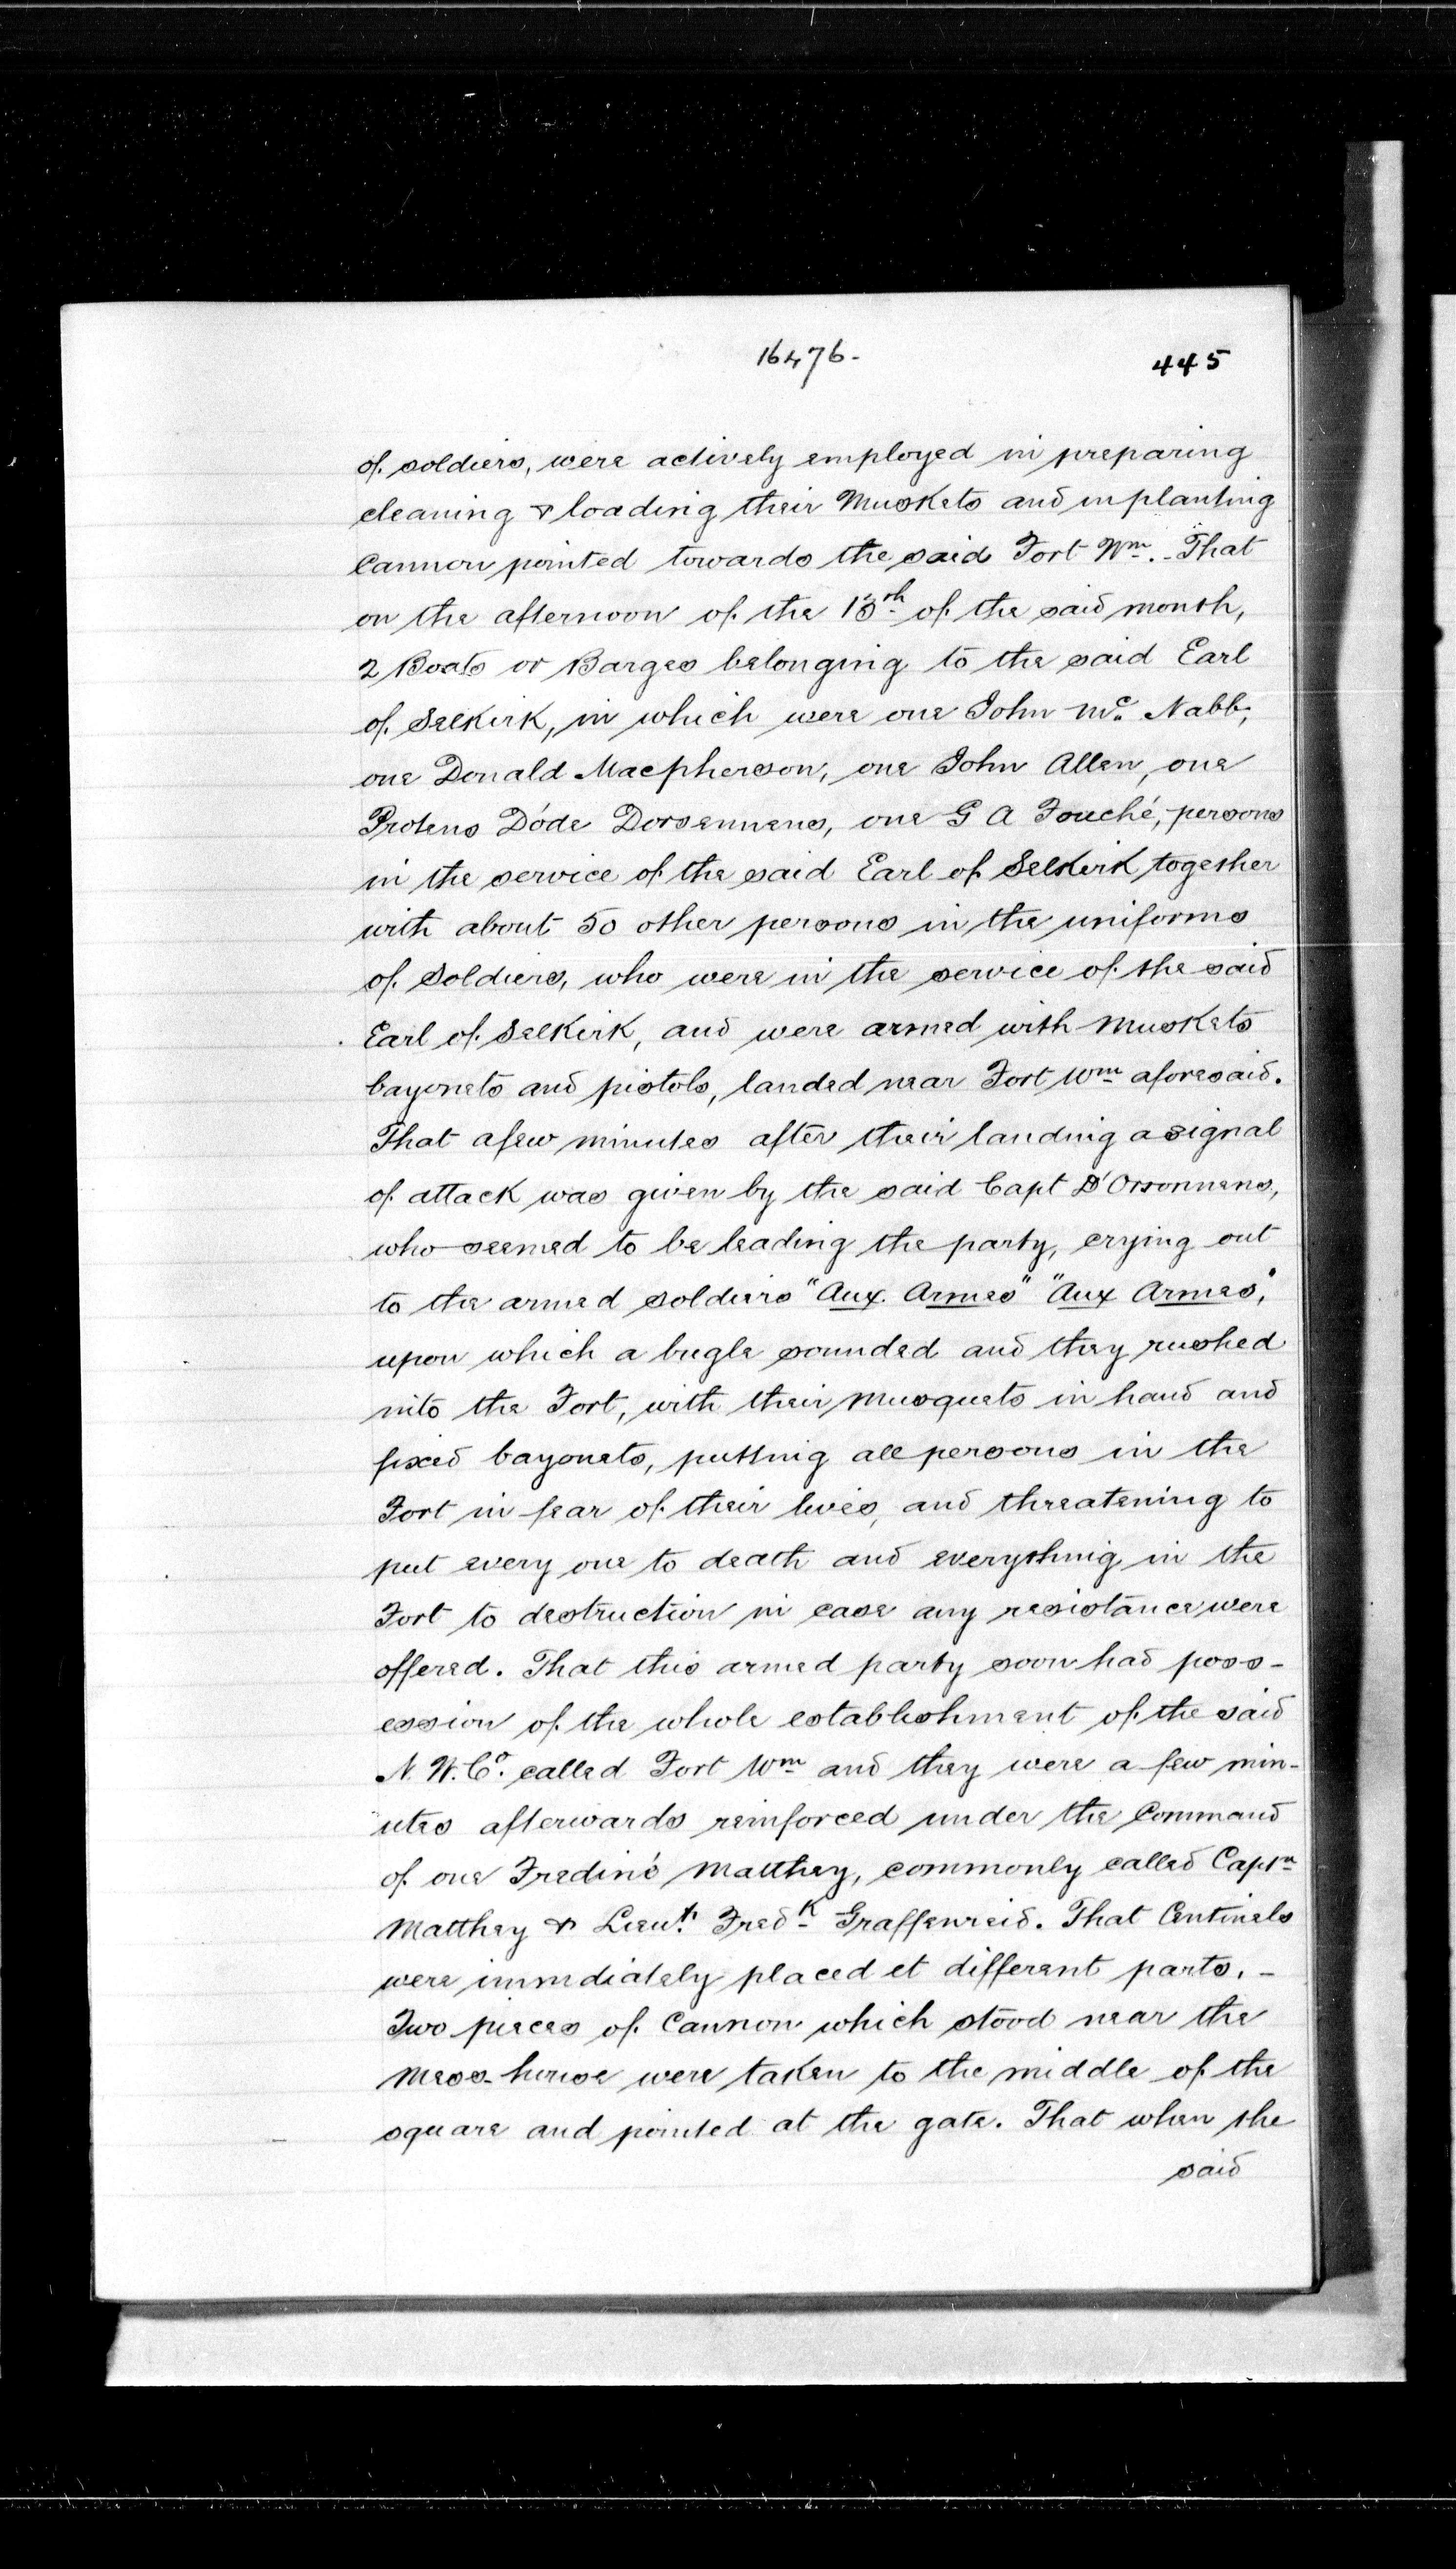 16476.
445
of soldiers, were actively employed in preparing
cleaning & loading their Muskets and in planting
Cannon pointed towards the said Fort Wm. That
on the afternoon of the 13th of the said month,
2 Boats or Barges belonging to the said Earl
of Selkirk, in which were one John Mc Nabb,
one Donald Macpherson, one John Allen, one
Protens Dóde Dorsennens, one G A Fouché, persons
in the service of the said Earl of Selkirk together
with about 50 other persons in the uniforms
of Soldiers, who were in the service of the said
Earl of Selkirk, and were armed with Muskets
bayonets and pistols, landed near Fort Wm aforesaid.
That a few minutes after their landing a signal
of attack was given by the said Capt D'Orsonnens,
who seemed to be leading the party, crying out
to the armed soldiers "Aux Armes" "Aux Armes",
upon which a bugle sounded and they rushed
into the Fort, with their Musquets in hand and
fixed bayonets, putting all persons in the
Fort in fear of their lives, and threatening to
put every one to death and everything in the
Fort to destruction in case any resistance were
offered. That this armed party soon had poss-
ession of the whole establishment of the said
N. W. Co. called Fort Wm and they were a few min-
utes afterwards reinforced under the Command
of one Fredinó Matthey, commonly called Captn
Matthey & Lieut. Fredk Graffenreid. That Centinels
were immdiately placed et different parts. -
Two pieces of Cannon which stood near the
Mess-house were taken to the middle of the
square and pointed at the gate. That when the
said